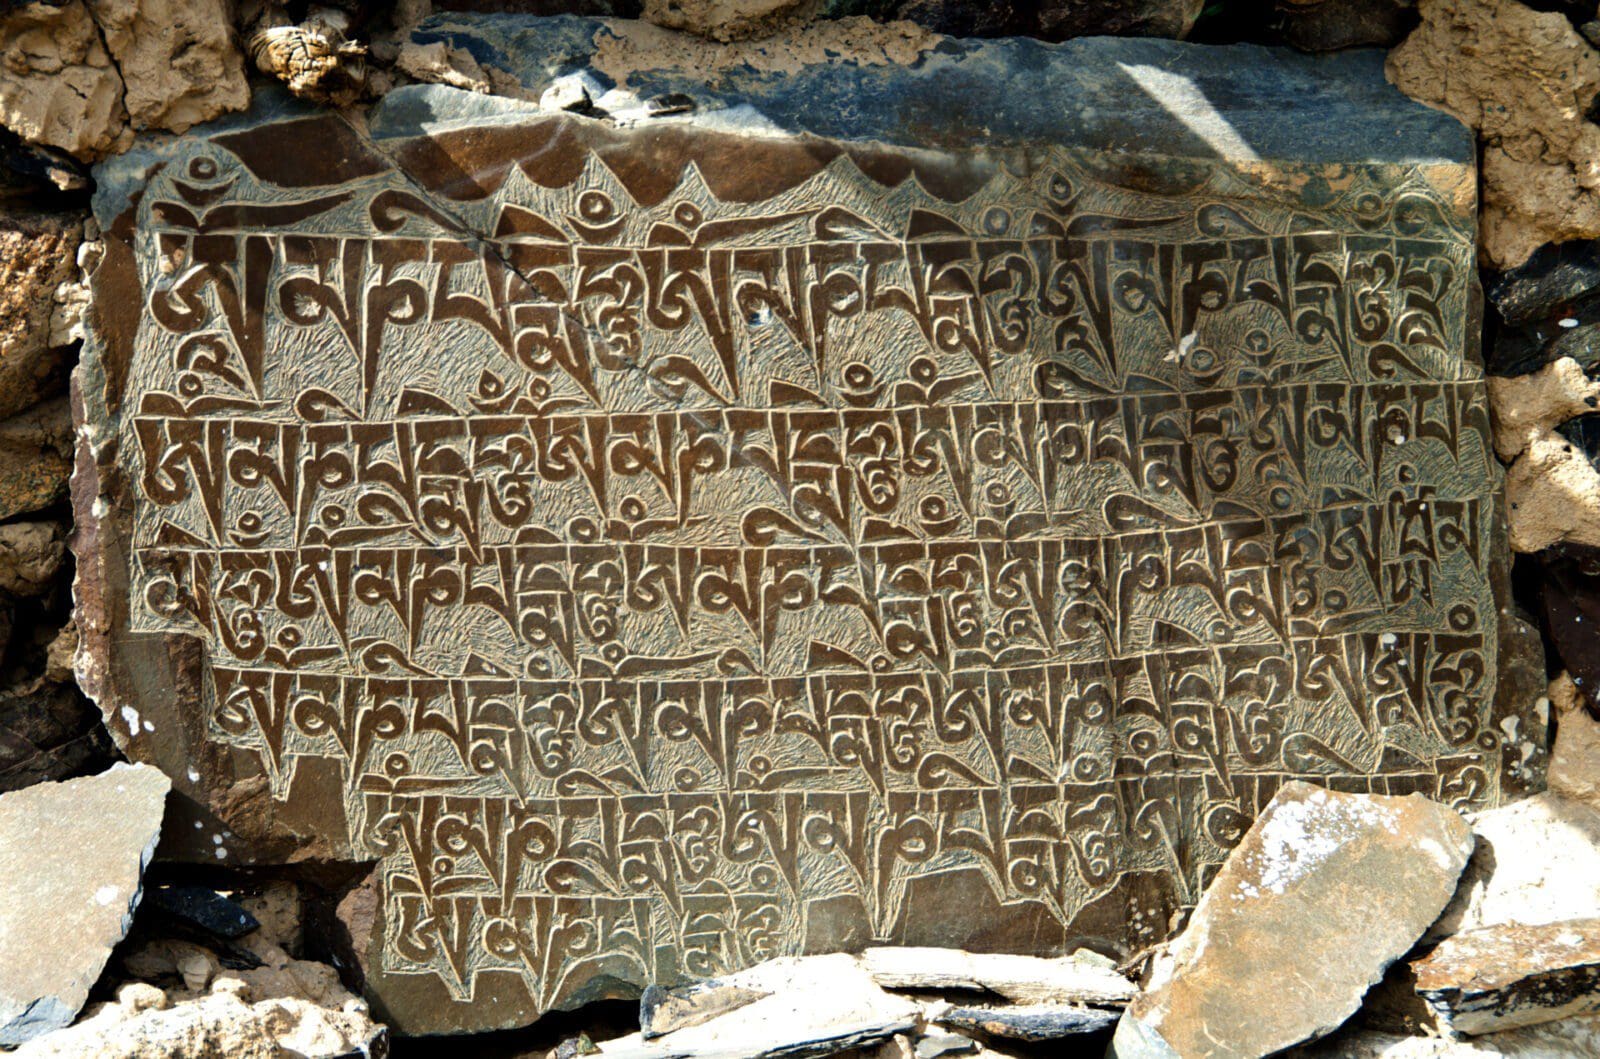 ཨོཾ མ ཎི པ དྨེ ཧཱུྃ ཨོཾ མ ཎི པ དྨེ ཧཱུྃ ཨོཾ མ ཎི པ དྨེ ཧཱུྃ ཧྲཱི
ཨོཾ མ ཎི པ དྨེ ཧཱུྃ ཨོཾ མ ཎི པ དྨེ ཧཱུྃ ཨོཾ མ ཎི པ དྨེ ཧཱུྃ ཨོཾ མ ཎི པ
དྨེ ཧཱུྃ ཨོཾ མ ཎི པ དྨེ ཧཱུྃ ཨོཾ མ ཎི པ དྨེ ཧཱུྃ ཨོཾ མ ཎི པ དྨེ ཧཱུྃ
ཨོཾ མ ཎི པ དྨེ ཧཱུྃ ཨོཾ མ ཎི པ དྨེ ཧཱུྃ ཨོཾ མ ཎི པ དྨེ ཧཱུྃ
ཨོཾ མ ཎི པ དྨེ ཧཱུྃ ཨོཾ མ ཎི པ དྨེ ཧཱུྃ
ཨོཾ མ ཎི པ དྨེ ཧཱུྃ